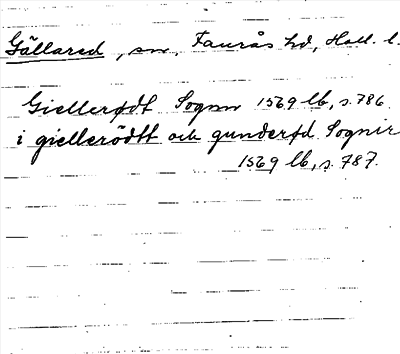 Gällared, sn, Faurås hd, Hall. l.
Giellerødt Sognn 1569 lb, s. 786.
i giellerödtt och gunderød Sognir
1569 lb, s. 787.